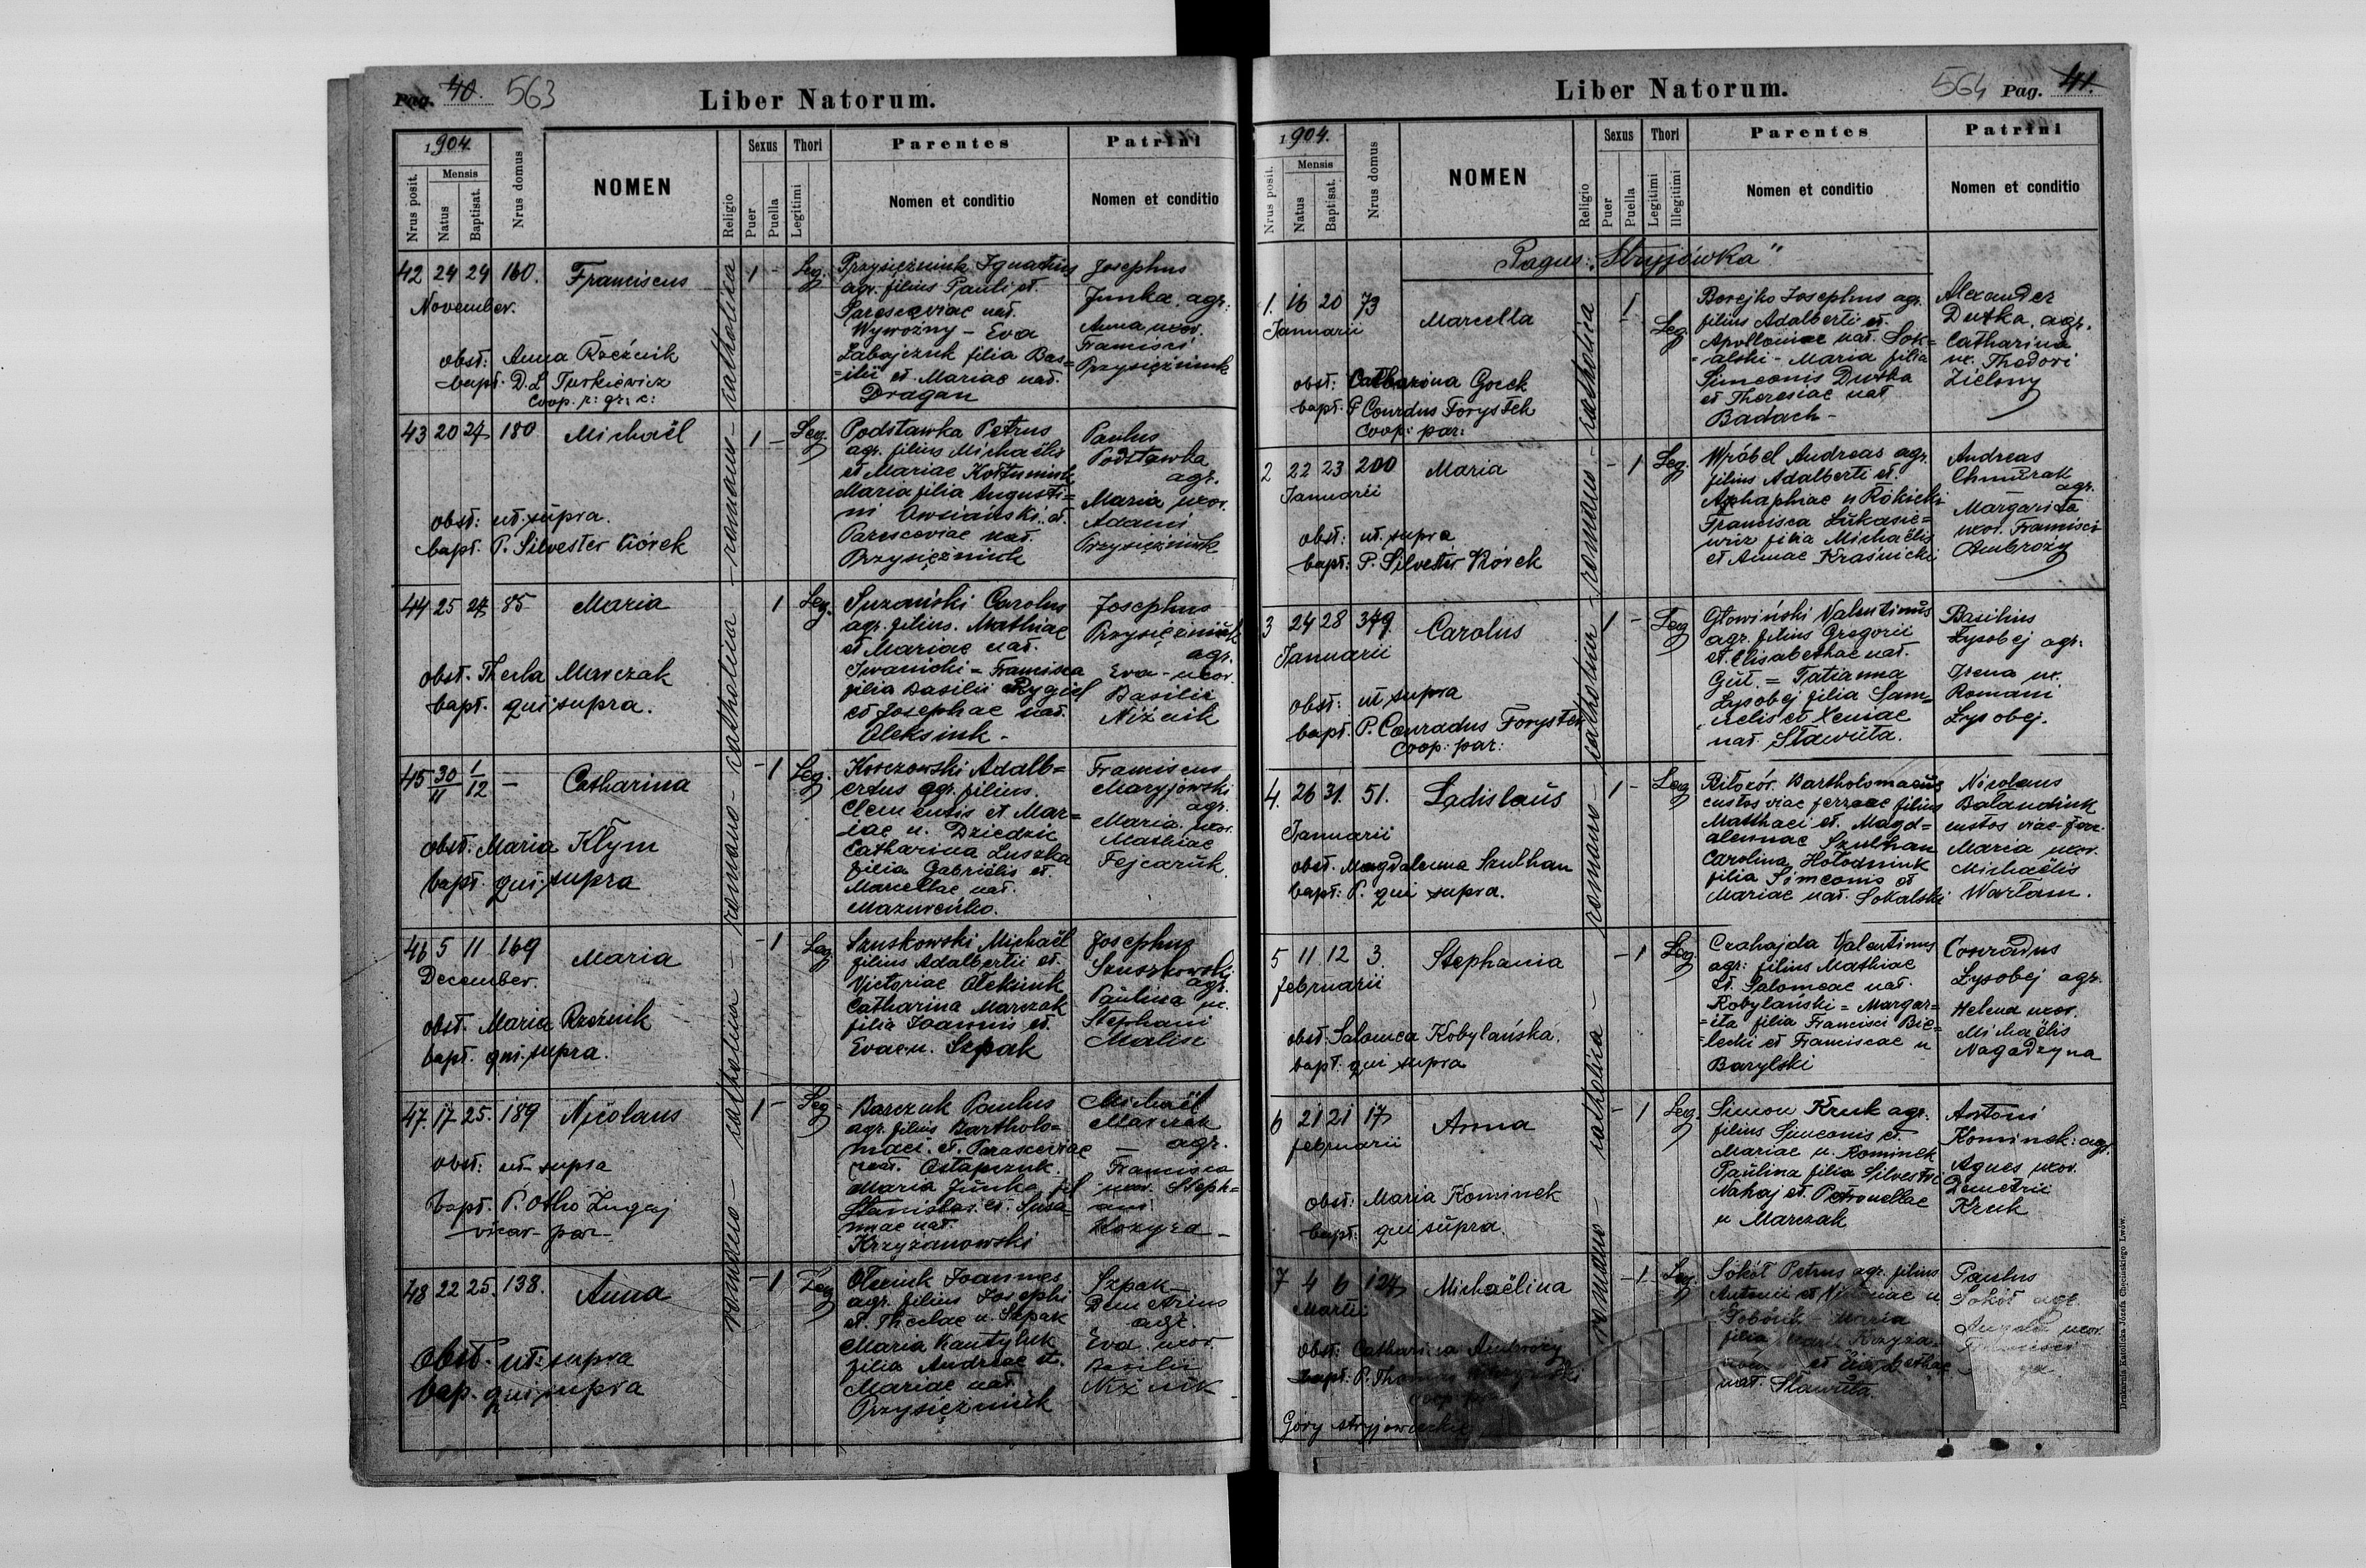 Pag. 40. 563
Liber Natorum.
1904.
Nrus posit.
Mensis
Natus
Baptisat.
Nrus domus
NOMEN
Religio
Sexus
Puer
Puella
Thori
Legitimi
Parentes
Nomen et conditio
Patrini
Nomen et conditio
romano - catholica - romano - catholica - romano - catholica - romano - catholica
42 24 24 160. Franciscus 1 - Leg.
November.
obst: Anna Rzeźnik
bapt. D. L. Turkiewicz
coop. r: gr. c:
Przysiężniuk Ignatius
agr. filius Pauli et.
Parasceviae nat.
Wywozny - Eva
Labajczuk filia Bas=
=ilii et Mariae nat.
Dragan
Josephus
Junka, agr:
Anna uxor.
Francisci
Przysiężniuk
43 20 27 180 Michaël 1 - Leg.
obst: ut supra.
bapt. P. Silvester Kiórek
Podstawka Petrus
agr. filius Michaëlis
et Mariae Kołtuniuk
Maria filia Augusti=
ni Owsiański et.
Parasceviae nat.
Przysiężniuk
Paulus
Podstawka
agr.
Maria uxor.
Adami
Przysiężniuk
44 25 27 85 Maria 1 Leg.
obst. Thecla Marczak
bapt. qui supra.
Suzański Carolus
agr. filius. Mathiae
et Mariae nat.
Iwanicki = Francisca
filia Basilii Rygiel
et Josephae nat.
Oleksiuk -
Josephus
Przysiężniuk
agr.
Eva - uxor.
Basilii
Niżnik
45 30/11 1/12 - Catharina - 1 Leg.
obst. Maria Kłym
bapt. qui supra
Korczowski Adalb=
ertus agr. filius.
Clementis et Mar=
iae n. Dziedzic
Catharina Luszka
filia Gabriëlis et.
Marcellae nat.
Mazurenko.
Franciscus
Maryjowski
agr.
Maria uxor.
Mathiae
Fejcaruk
46 5 11 169 Maria - 1 Leg.
December.
obst. Maria Rzeźnik
bapt. qui supra.
Szuszkowski Michaël
filius Adalbertii et.
Victoriae Olekiuk
Catharina Marczak
filia Joannis et.
Evae n. Szpak
Josephus
Szuszkowski
agr.
Paulina ux.
Stephani
Malisz
47. 17 25. 189 Nicolaus 1 - Leg.
obst: ut supra
bapt. P. Otho Zugaj
vicar - par -
Barczuk Paulus
agr. filius Bartholo=
maei. et. Parasceviae
nat. Ostapczuk.
Maria Junka fil
Stanislai et. Susa=
nnae nat.
Krzyżanowski
Michaël
Marczak
agr.
Francisca
uxor. Steph=
ani
Kozyra -
48 22 25. 138. Anna - 1 Leg
Obst. ut supra
bap. qui supra
Olexiuk Joannes
agr. filius Josephi
et. Theclae n. Szpak
Maria Kantyluk
filia Andreae et.
Mariae nat.
Przysiężniuk
Szpak
Demetrius
agr.
Eva uxor
Basilii
Niżnik
Liber Natorum. 564 Pag. 41.
1904.
Nrus posit.
Mensis
Natus
Baptisat.
Nrus domus
NOMEN
Religio
Sexus
Puer
Puella
Thori
Legitimi
Illegitimi
Parentes
Nomen et conditio
Patrini
Nomen et conditio
Pagus: "Stryjówka"
romano - catholica - romano - catholica - romano - catholica - romano - catholica
1. 16 20 73 Marcella 1 Leg.
Januarii
obst: Catharina Gocek
bapt. P Conrdus Forystek
coop: par:
Borejko Josephus agr.
filius Adalberti et.
Apolloniae nat. Sok=
=alski - Maria filia
Simeonis Dutka
et Theresiae nat
Badach -
Alexander
Dutka, agr.
Catharina
ux. Thedori
Zielony
2 22 23 200 Maria - 1 Leg.
Januarii
obst: ut supra
bapt: P. Silvester Kiórek
Wróbel Andreas agr.
filius Adalberti et.
Aghaphiae n Rokicki
Francisca Łukasie=
wicz filia Michaëlis
et Annae Kraśnicki
Andreas
Chmurak
agr.
Margarita
uxor. Francisci
Ambroży
3 24 28 379. Carolus 1 - Leg
Januarii
obst: ut supra
bapt. P. Conradus Forystek
coop: par:
Głowiński Valentinus
agr. filius Gregorii
et. Elisabethae nat.
Gut. = Tatianna
Łysobej filia Sam=
uelis et Xeniae
nat. Sławuta.
Basilius
Łysobej agr.
Irena ux.
Romani
Łysobej.
4. 26 31. 51. Ladislaus 1 - Leg
Januarii
obst. Magdalenna Szulhan
bapt: P. qui supra.
Bartholomaeus
custos viae ferreae filius
Matthaei et. Magd=
alennae Szulhan
Carolina Hołodniuk
filia Simeonis et
Mariae nat. Sokalski
Nicolaus
Balandiuk
custos viae - ferr.
Maria uxor.
Michaëlis
Warłam.
5 11 12 3 Stephania - 1 Leg.
februarii
obst. Salomea Kobylańska.
bapt: qui supra
Czahajda Valentinus
agr: filius Mathiae
et. Salomeae nat.
Kobylański = Margar=
=ita filia Francisci Bie=
=lecki et Franciscae n
Barylski
Conradus
Łysobej agr.
Helena uxor.
Michaëlis
Nagadzyna
6 21 21 17 Anna - 1 Leg.
februarii
Obst: Maria Kominek
bapt: qui supra.
Simon Kruk agr.
filius Simeonis et
Mariae n. Kominek
Paulina filia Silvestri
Nahaj et. Petronellae
n Marczak
Antoni
Kominek: agr.
Agnes uxor.
Demetrii
Kruk
7 4 6 127 Michaëlina - 1 - Leg.
Martii
obst: Catharina Ambroży
bapt. P. Thomas
coop. par.
Góry stryjowieckie
Sokół Petrus agr. filius
Antonii et n
Maria
filia
et Elisabethae
nat. Sławuta.
Paulus
Sokół agr.
uxor.
Francisci
Drukarnia Katolicka Józefa Chęcińskiego Lwów.